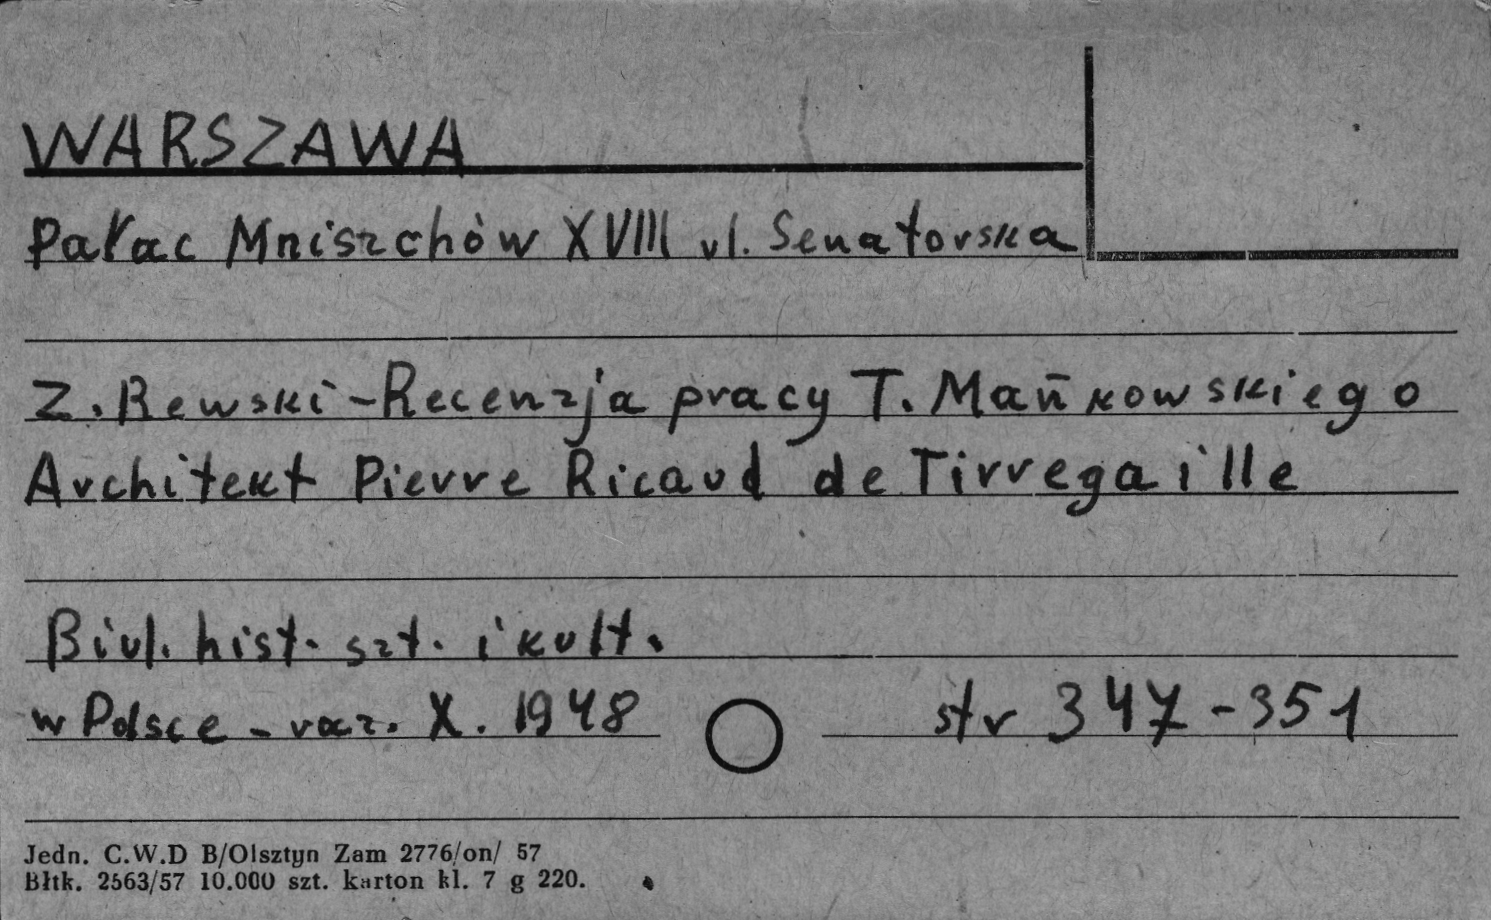 WARSZAWA
Pałac Mniszchów XVIII ul. Senatorska
Z. Rewski - Recenzja pracy T. Mańkowskiego
Architekt Pierre Ricaud de Tirregaille
Biul. hist. szt. i kult.
w Polsce - rocz. X. 1948 str 347-351
Jedn. C.W.D B/Olsztyn Zam 2776/on/ 57
Błtk. 2563/57 10.000 szt. karton kl. 7 g 220.